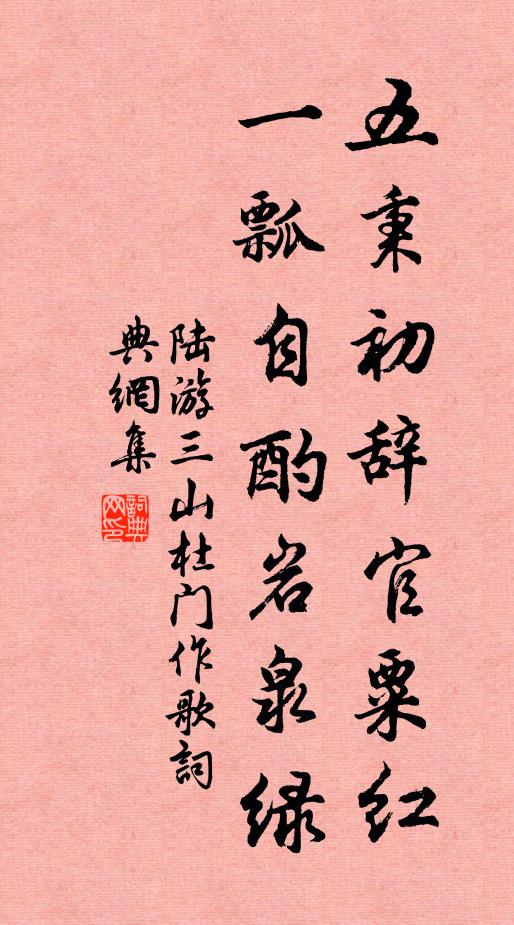 五秉初辞官粟红
一瓢自酌岩泉绿
陆游三山杜门作歌詞
典網集
詞典网印